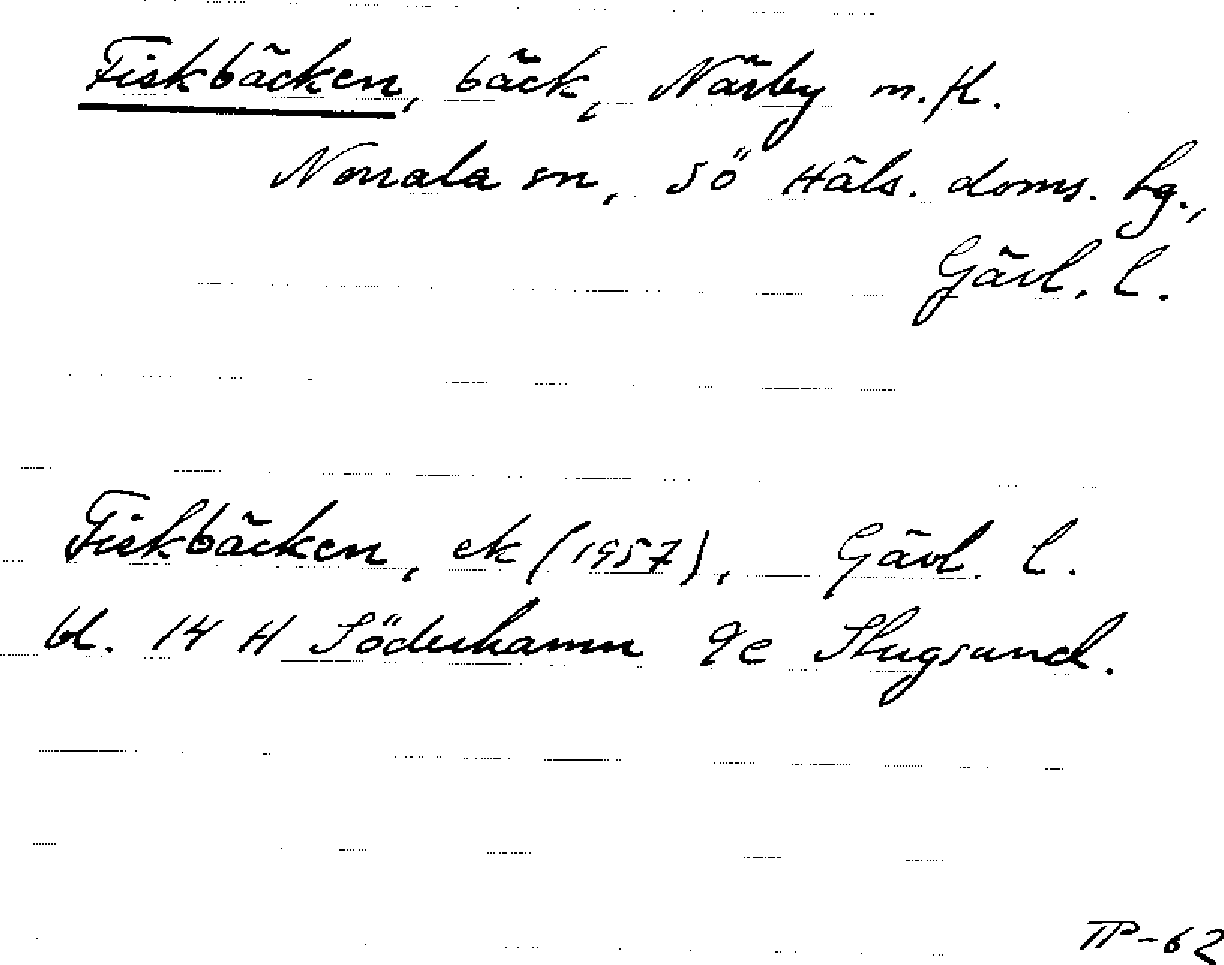 Fiskbäcken, bäck, Närby m.fl.
Norrala sn, Sö Häls. doms. hg.,
Gävl. l.
Fiskbäcken, ek (1957), Gävl. l.
bl. 14 H Söderhamn 9c Stugsund.
TP-62